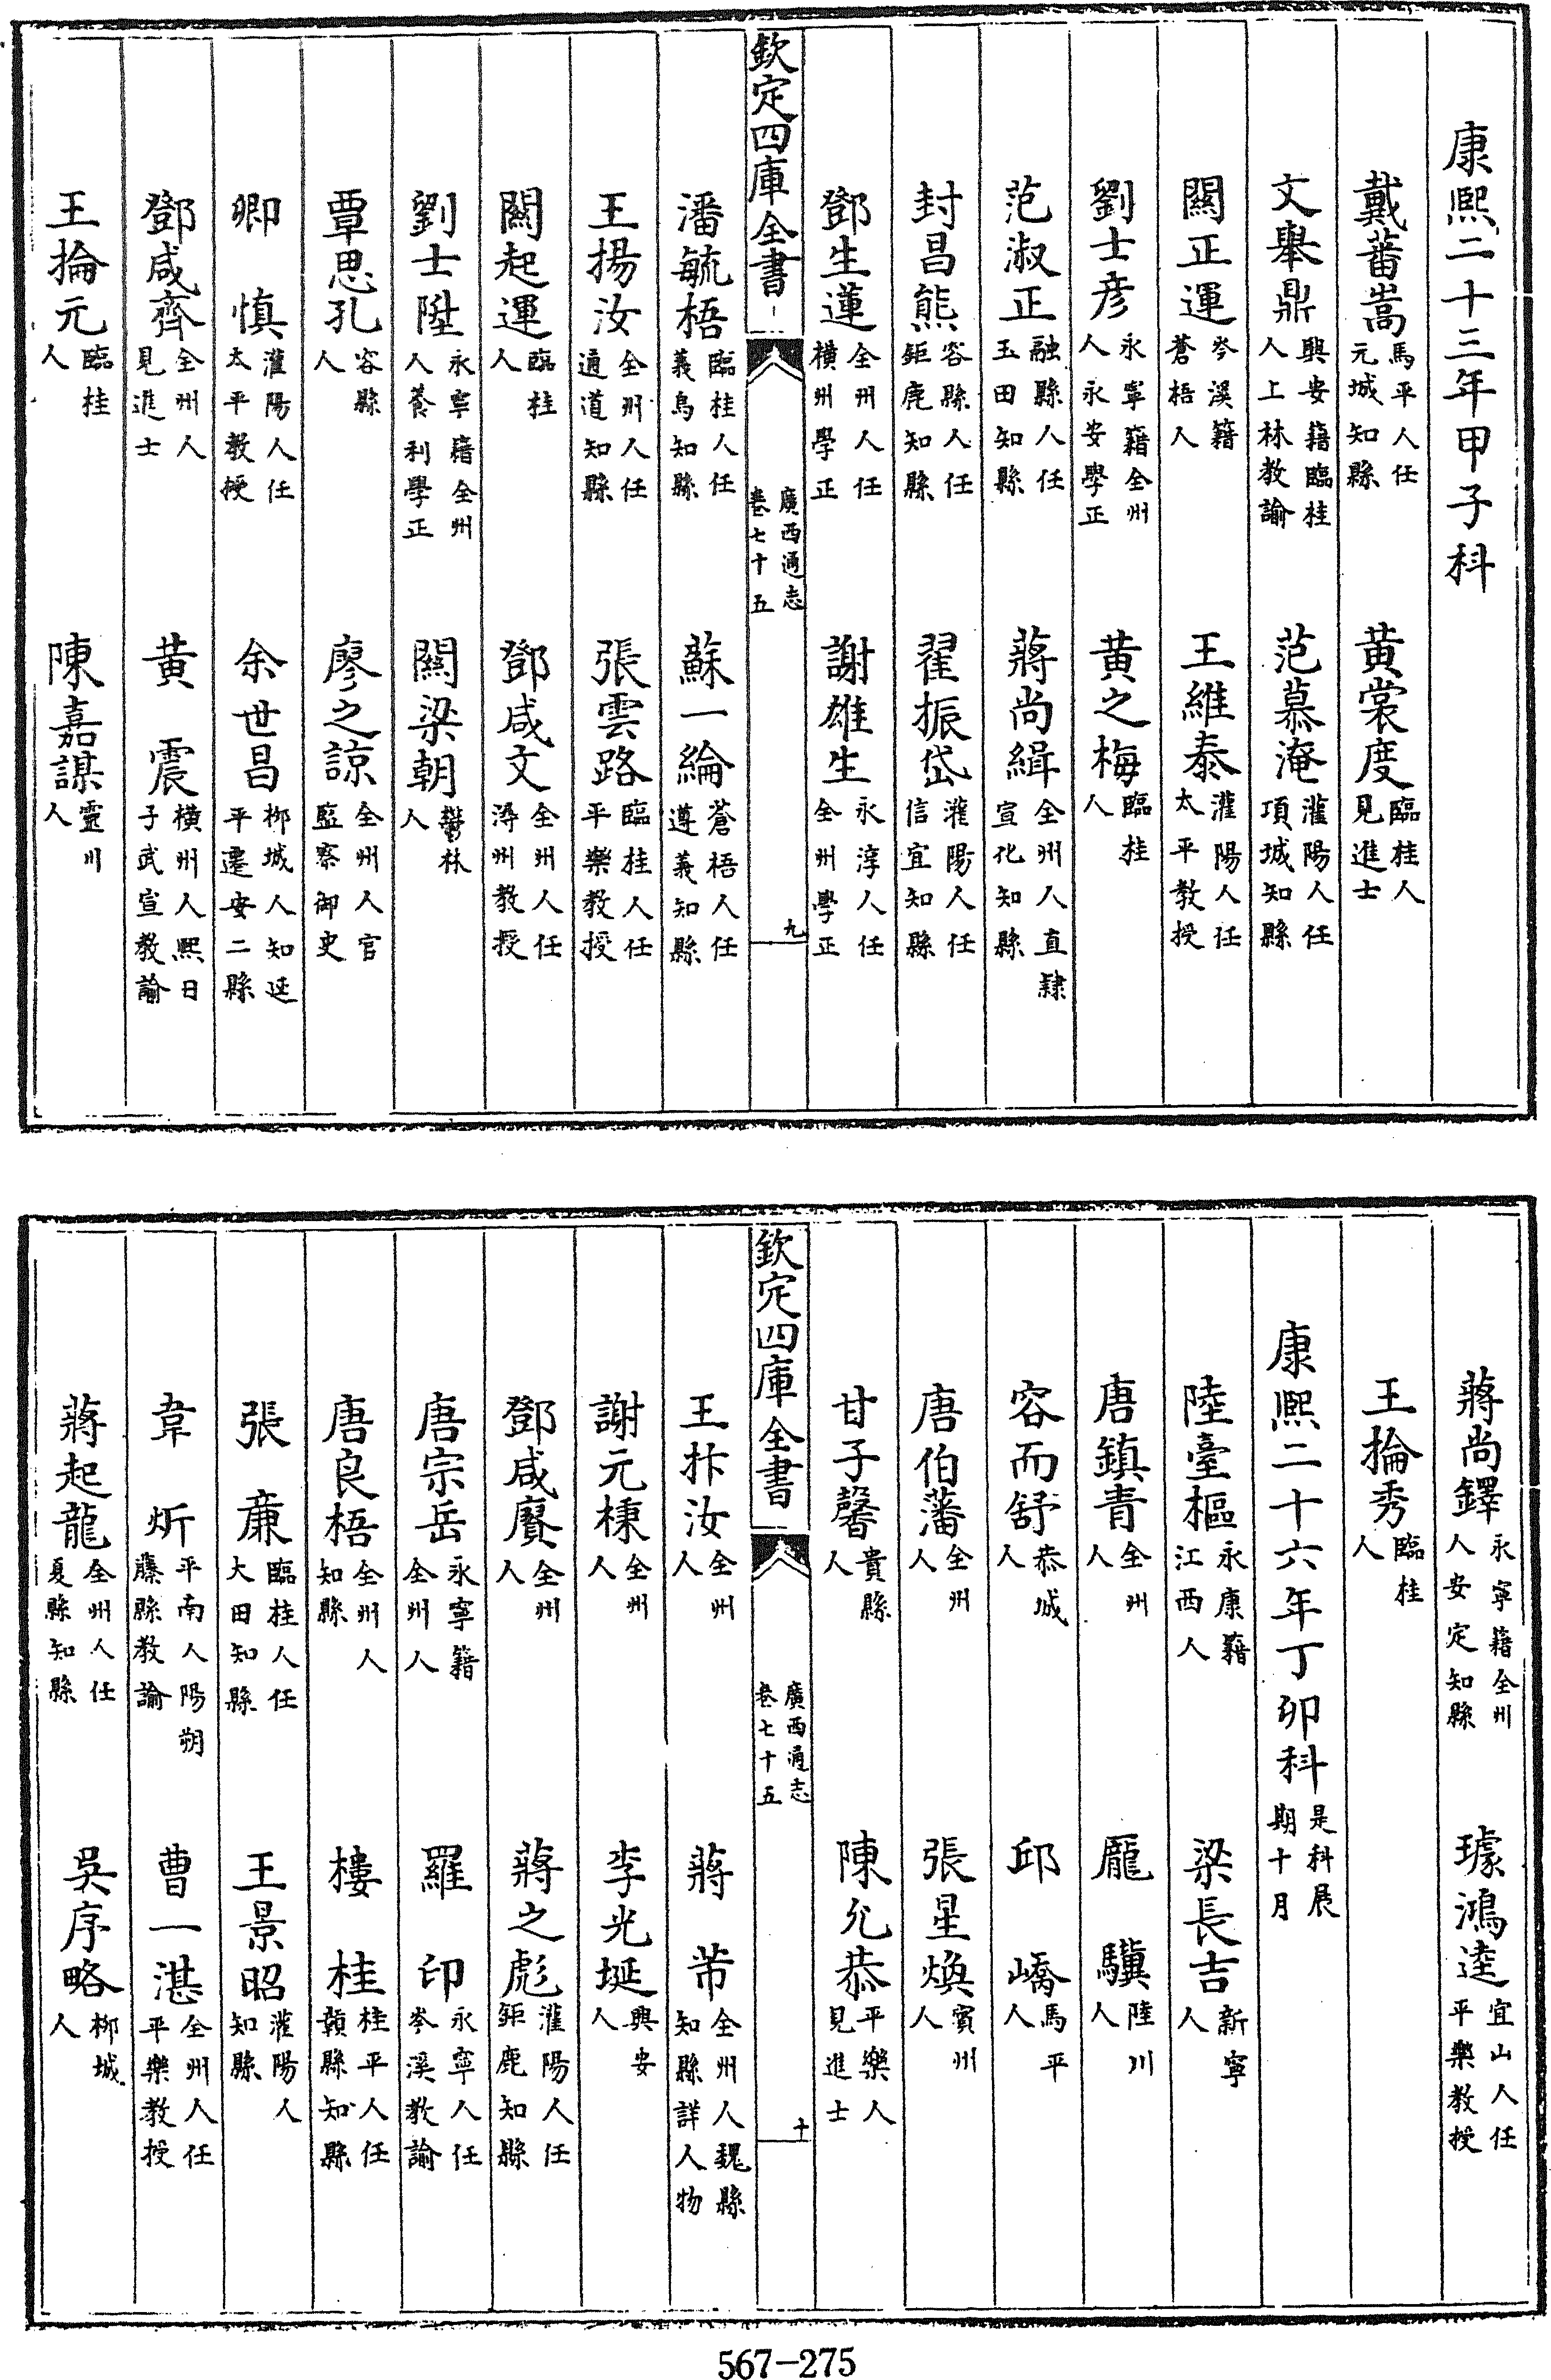 康熙二十三年甲子科
戴蕃嵩馬平人任元城知縣 黃裳度臨桂人見進士
文舉鼎興安籍臨桂人上林教諭 范慕淹灌陽人任項城知縣
闗正運岑溪籍蒼梧人 王維泰灌陽人任太平教授
劉士彦永寧籍全州人永安學正 黄之梅臨桂人
范淑正融縣人任玉田知縣 蔣尚緝全州人直隸宣化知縣
封昌熊容縣人任鉅鹿知縣 翟振岱灌陽人任信宜知縣
鄧生蓮全州人任橫州學正 謝雄生永淳人任全州學正
欽定四庫全書 廣西通志卷七十五 九
潘毓梧臨桂人任義烏知縣 蘇一綸蒼梧人任遵義知縣
王揚汝全州人任通道知縣 張雲路臨桂人任平樂教授
闗起運臨桂人 鄧咸文全州人任潯州教授
劉士陞永寧籍全州人養利學正 闗梁朝鬱林人
覃思孔容縣人 廖之諒全州人官監察御史
卿慎灌陽人任太平教授 余世昌柳城人知延平遷安二縣
鄧咸齊全州人見進士 黃震橫州人熙日子武宣教諭
王掄元臨桂人 陳嘉謀靈川人
蔣尚鐸永寧籍全州人安定知縣 璩鴻逵宜山人任平樂教授
王掄秀臨桂人
康熙二十六年丁卯科是科展期十月
陸臺樞永康籍江西人 梁長吉新寧人
唐鎮青全州人 龎驥陸川人
容而舒恭城人 邱嶠馬平人
唐伯藩全州人 張星煥賓州人
甘子馨貴縣人 陳允恭平樂人見進士
欽定四庫全書 廣西通志卷七十五 十
王抃汝全州人 蔣芾全州人魏縣知縣詳人物
謝元棟全州人 李光埏興安人
鄧咸賡全州人 蔣之彪灌陽人任鉅鹿知縣
唐宗岳永寧籍全州人 羅印永寧人任岑溪教諭
唐良梧全州人知縣 樓桂桂平人任贛縣知縣
張亷臨桂人任大田知縣 王景昭灌陽人知縣
韋炘平南人陽朔籐縣教諭 曹一湛全州人任平樂教授
蔣起龍全州人任夏縣知縣 吳序略柳城人
567-275